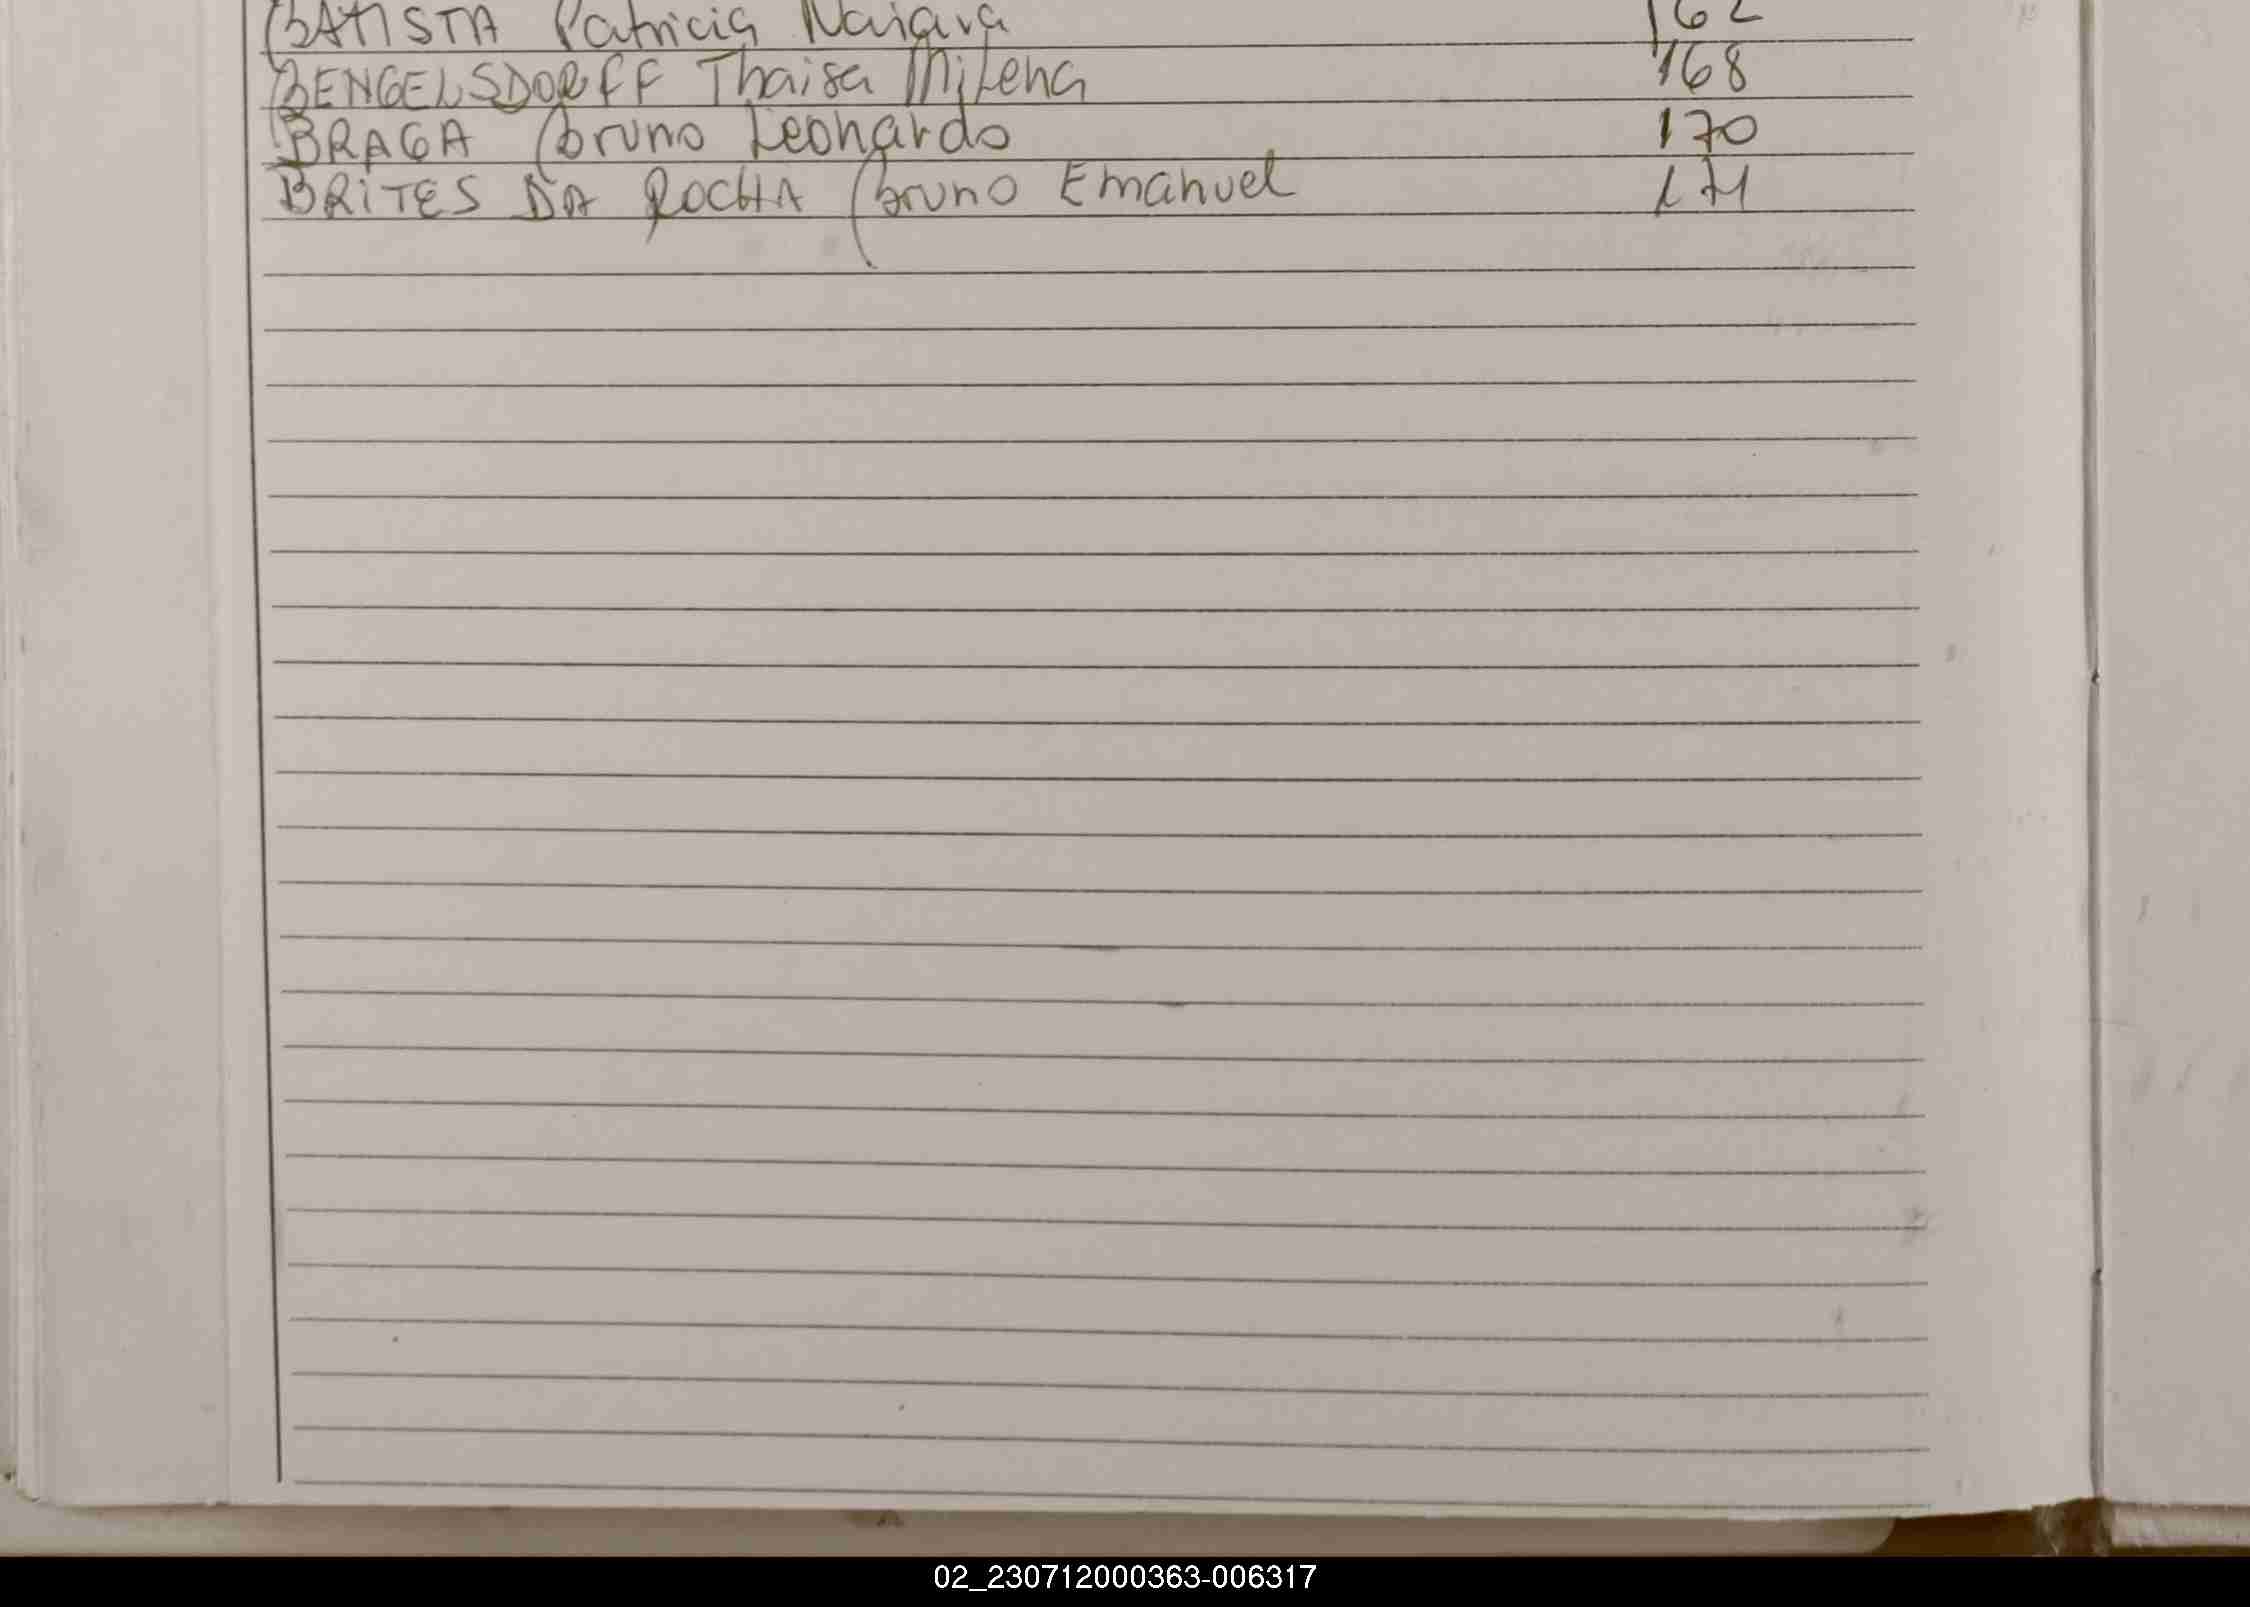 BATISTA Patricia Naiara 162
BENGELSDORFF Thaisa Milena 168
BRAGA Bruno Leonardo 170
BRITES DA ROCHA Bruno Emanuel 171
02_230712000363-006317